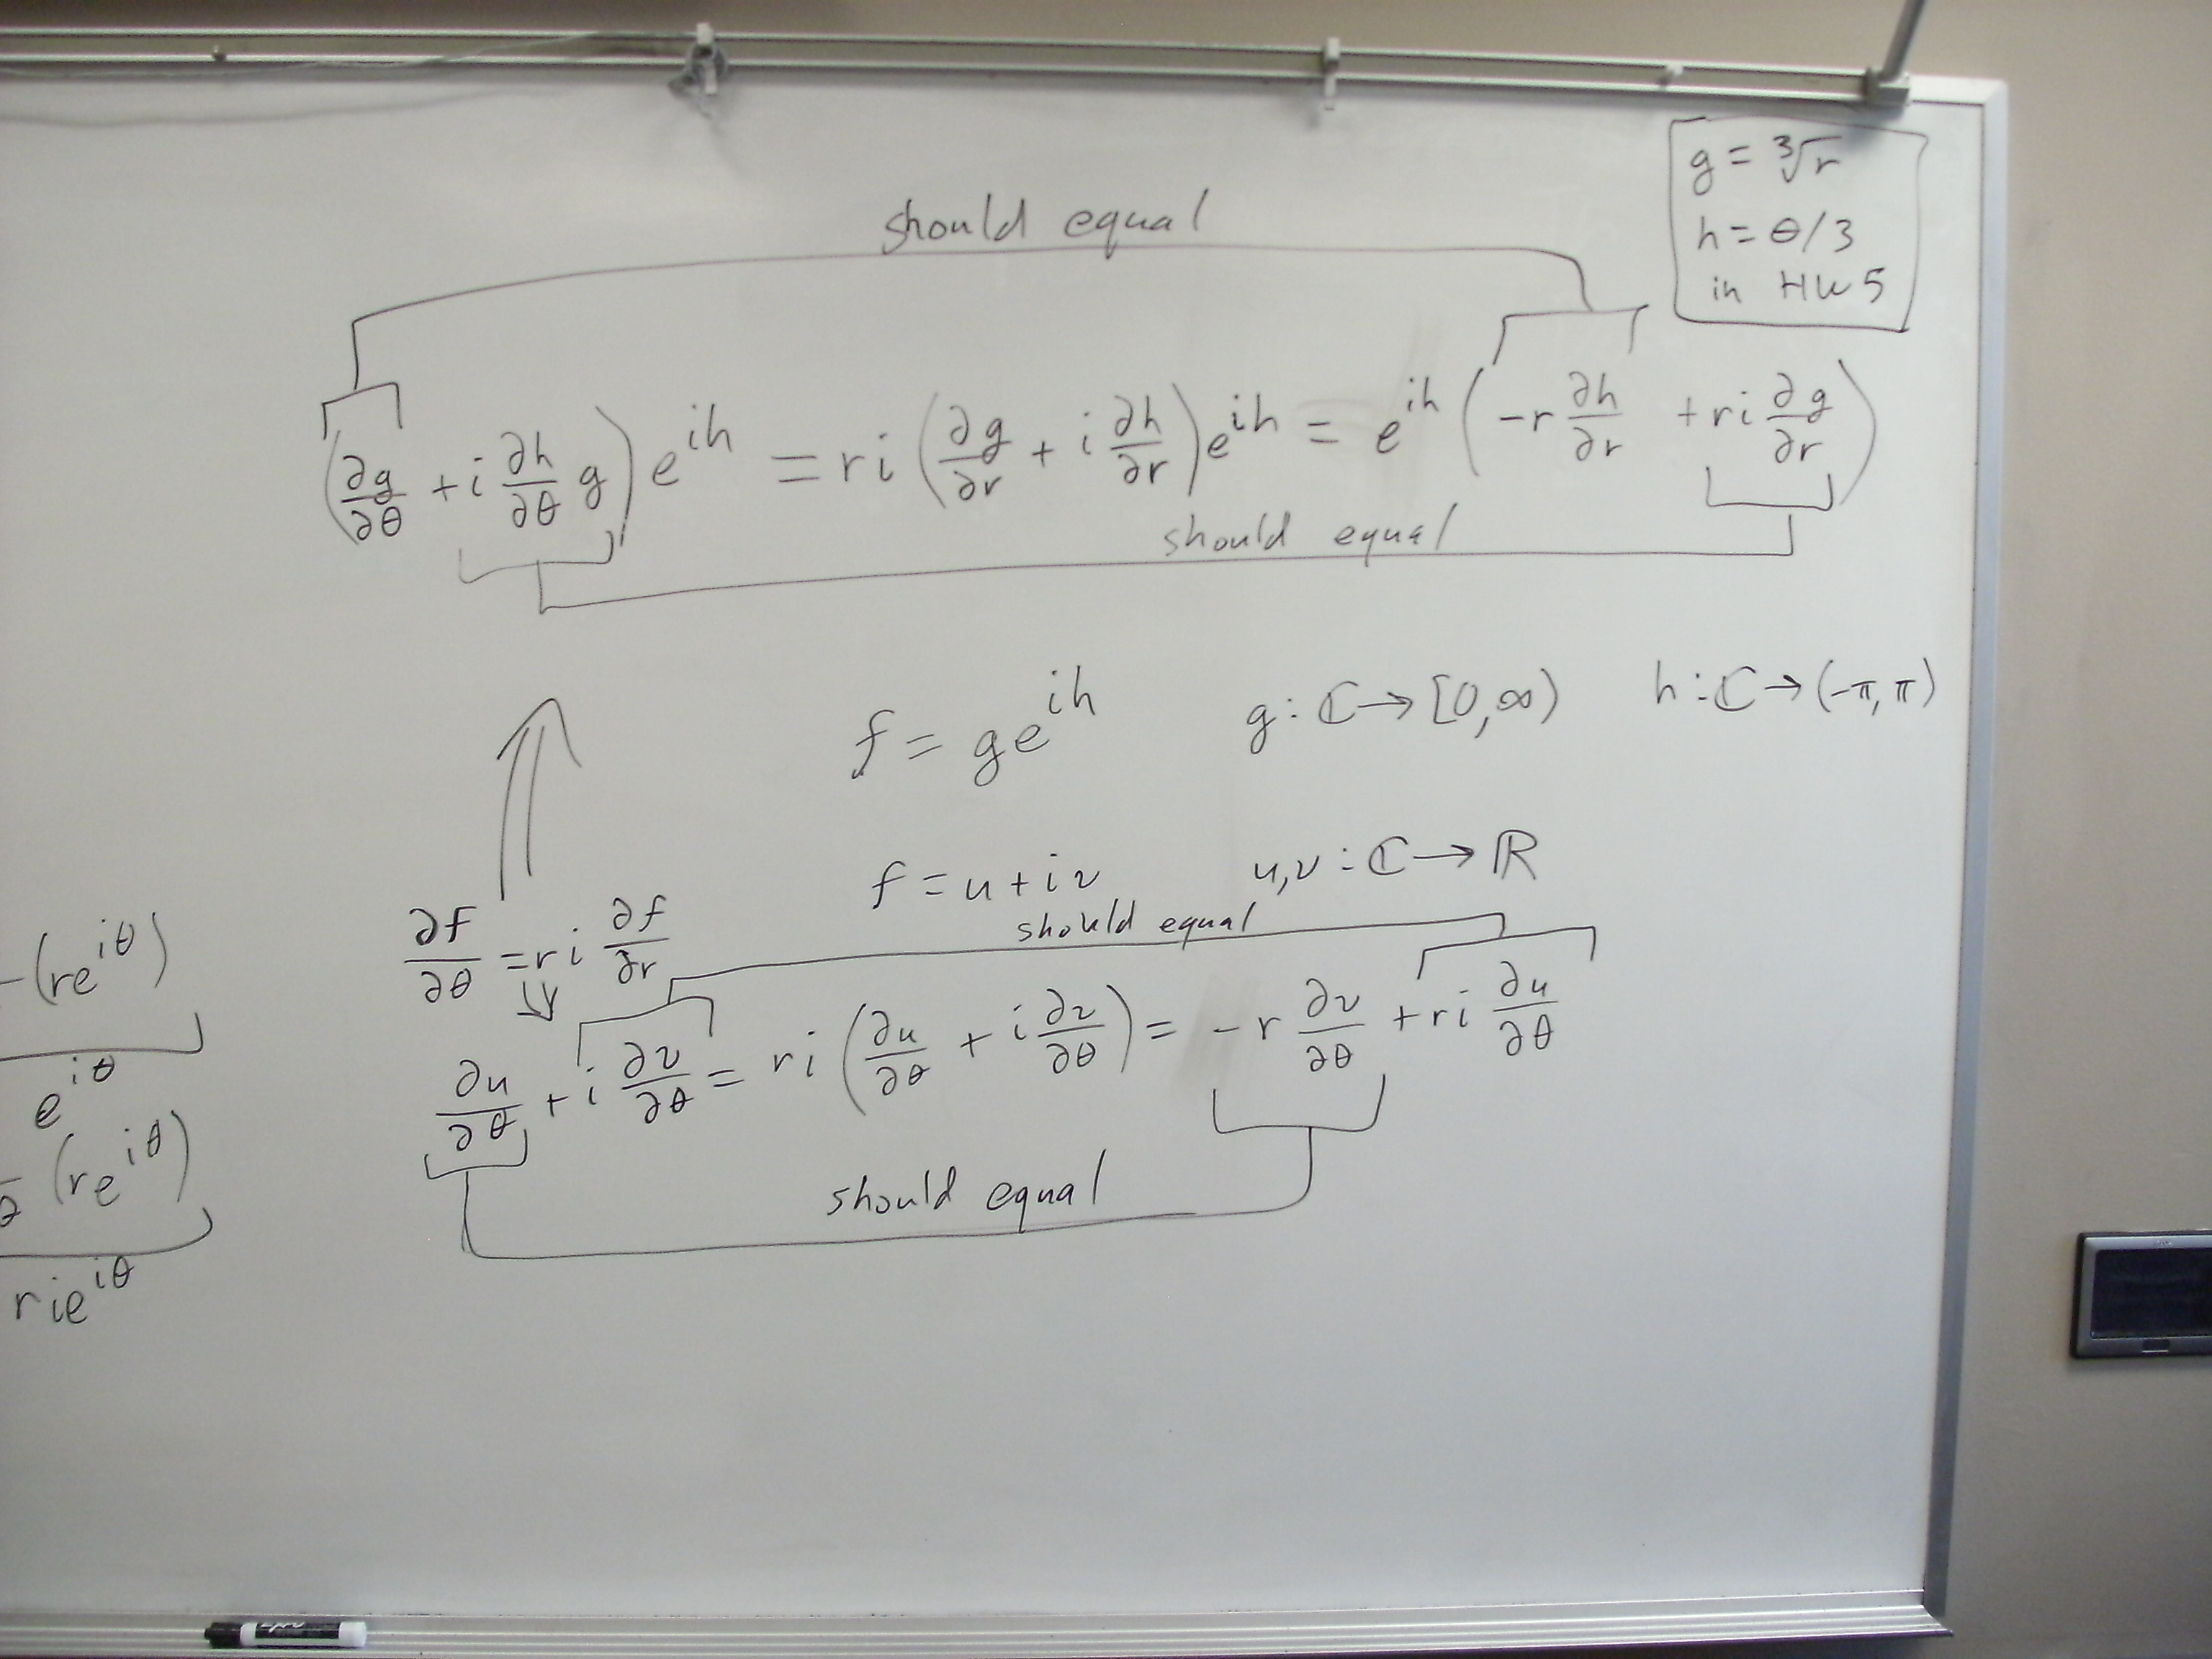 g = ∛r
h = θ/3
in HW5
should equal
(∂g/∂θ + i ∂h/∂θ g) e^{ih} = ri (∂g/∂r + i ∂h/∂r) e^{ih} = e^{ih} (-r ∂h/∂r + ri ∂g/∂r)
should equal
f = ge^{ih} g : ℂ → [0,∞) h : ℂ → (-π, π)
f = u + iv u,v : ℂ → ℝ
∂f/∂θ = ri ∂f/∂r
should equal
∂u/∂θ + i ∂v/∂θ = ri (∂u/∂θ + i ∂v/∂θ) = -r ∂v/∂θ + ri ∂u/∂θ
should equal
(re^{iθ})
e^{iθ}
(re^{iθ})
rie^{iθ}